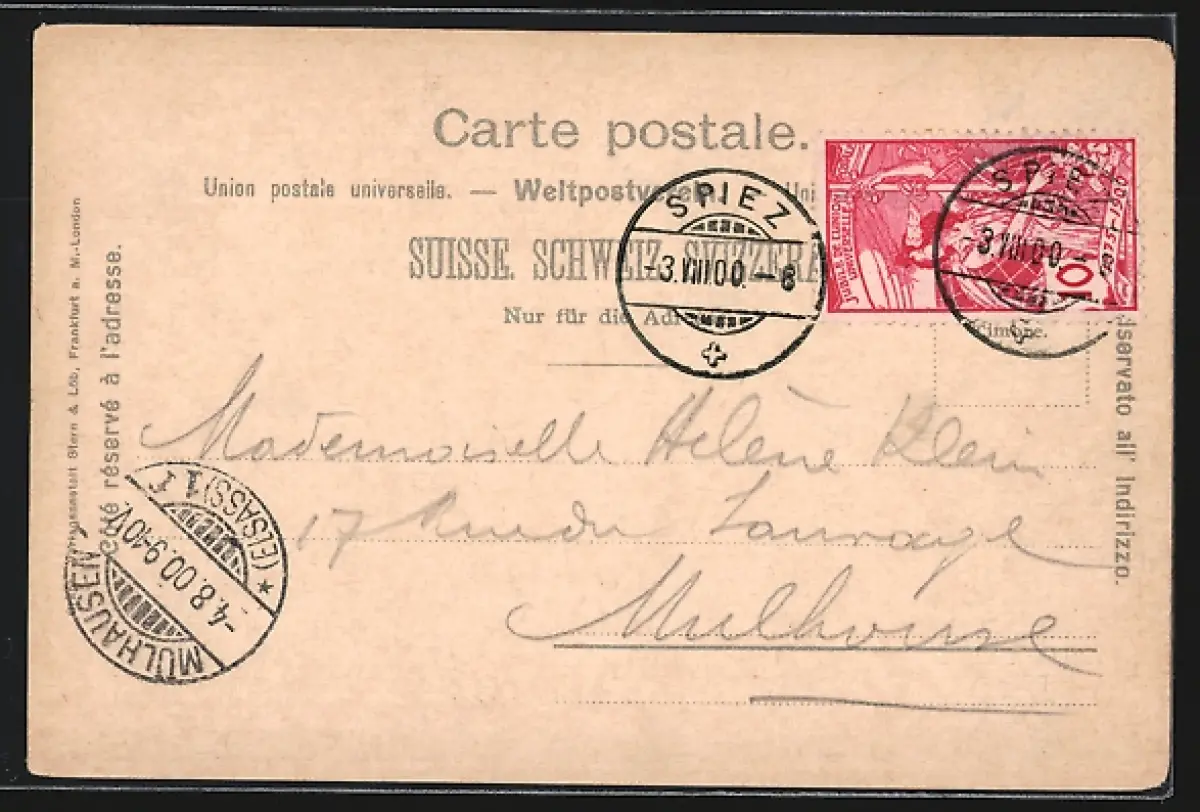 Carte postale.
Union postale universelle. — Weltpostverein.
SUISSE. SCHWEIZ. SVIZZERA
Nur für die Adr
JUBILÉ DE L'UNION POSTALE UNIVERSELLE
1875-1900
10
SPIEZ
-3.VIII.00.-6
SPIEZ
-3.VIII.00.-
Mademoiselle Hélène Klein
17 Rue du Sauvage
Mulhouse
MÜLHAUSEN
-4.8.00.9-10V.
* (ELSASS) 1 f
Côté réservé à l'adresse.
Stern & Löb, Frankfurt a. M.-London
Riservato all' Indirizzo.